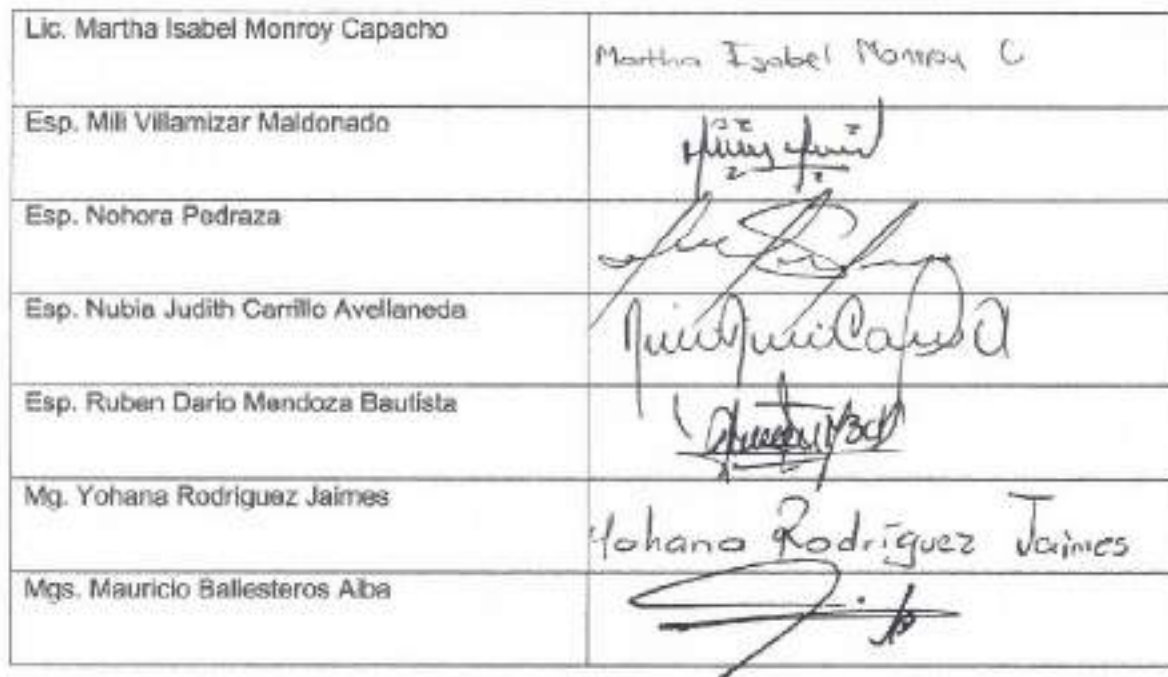 Lic. Martha Isabel Monroy Capacho
Martha Isabel Monroy C
Esp. Mili Villamizar Maldonado
Esp. Nohora Pedraza
Esp. Nubia Judith Carrillo Avellaneda
Esp. Ruben Dario Mendoza Bautista
Mg. Yohana Rodriguez Jaimes
Yohana Rodríguez Jaimes
Mgs. Mauricio Ballesteros Alba